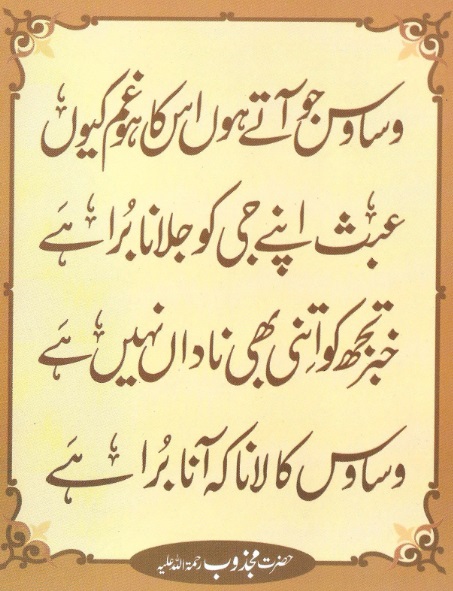 وساوس جو آتے ہوں اس کا ہو غم کیوں
عبث اپنے جی کو جلانا بُرا ہَے
خبر تجھ کو اِتنی بھی ناداں نہیں ہَے
وساوس کا لانا کہ آنا بُرا ہَے
حضرت مجذوب رحمۃ اللہ علیہ